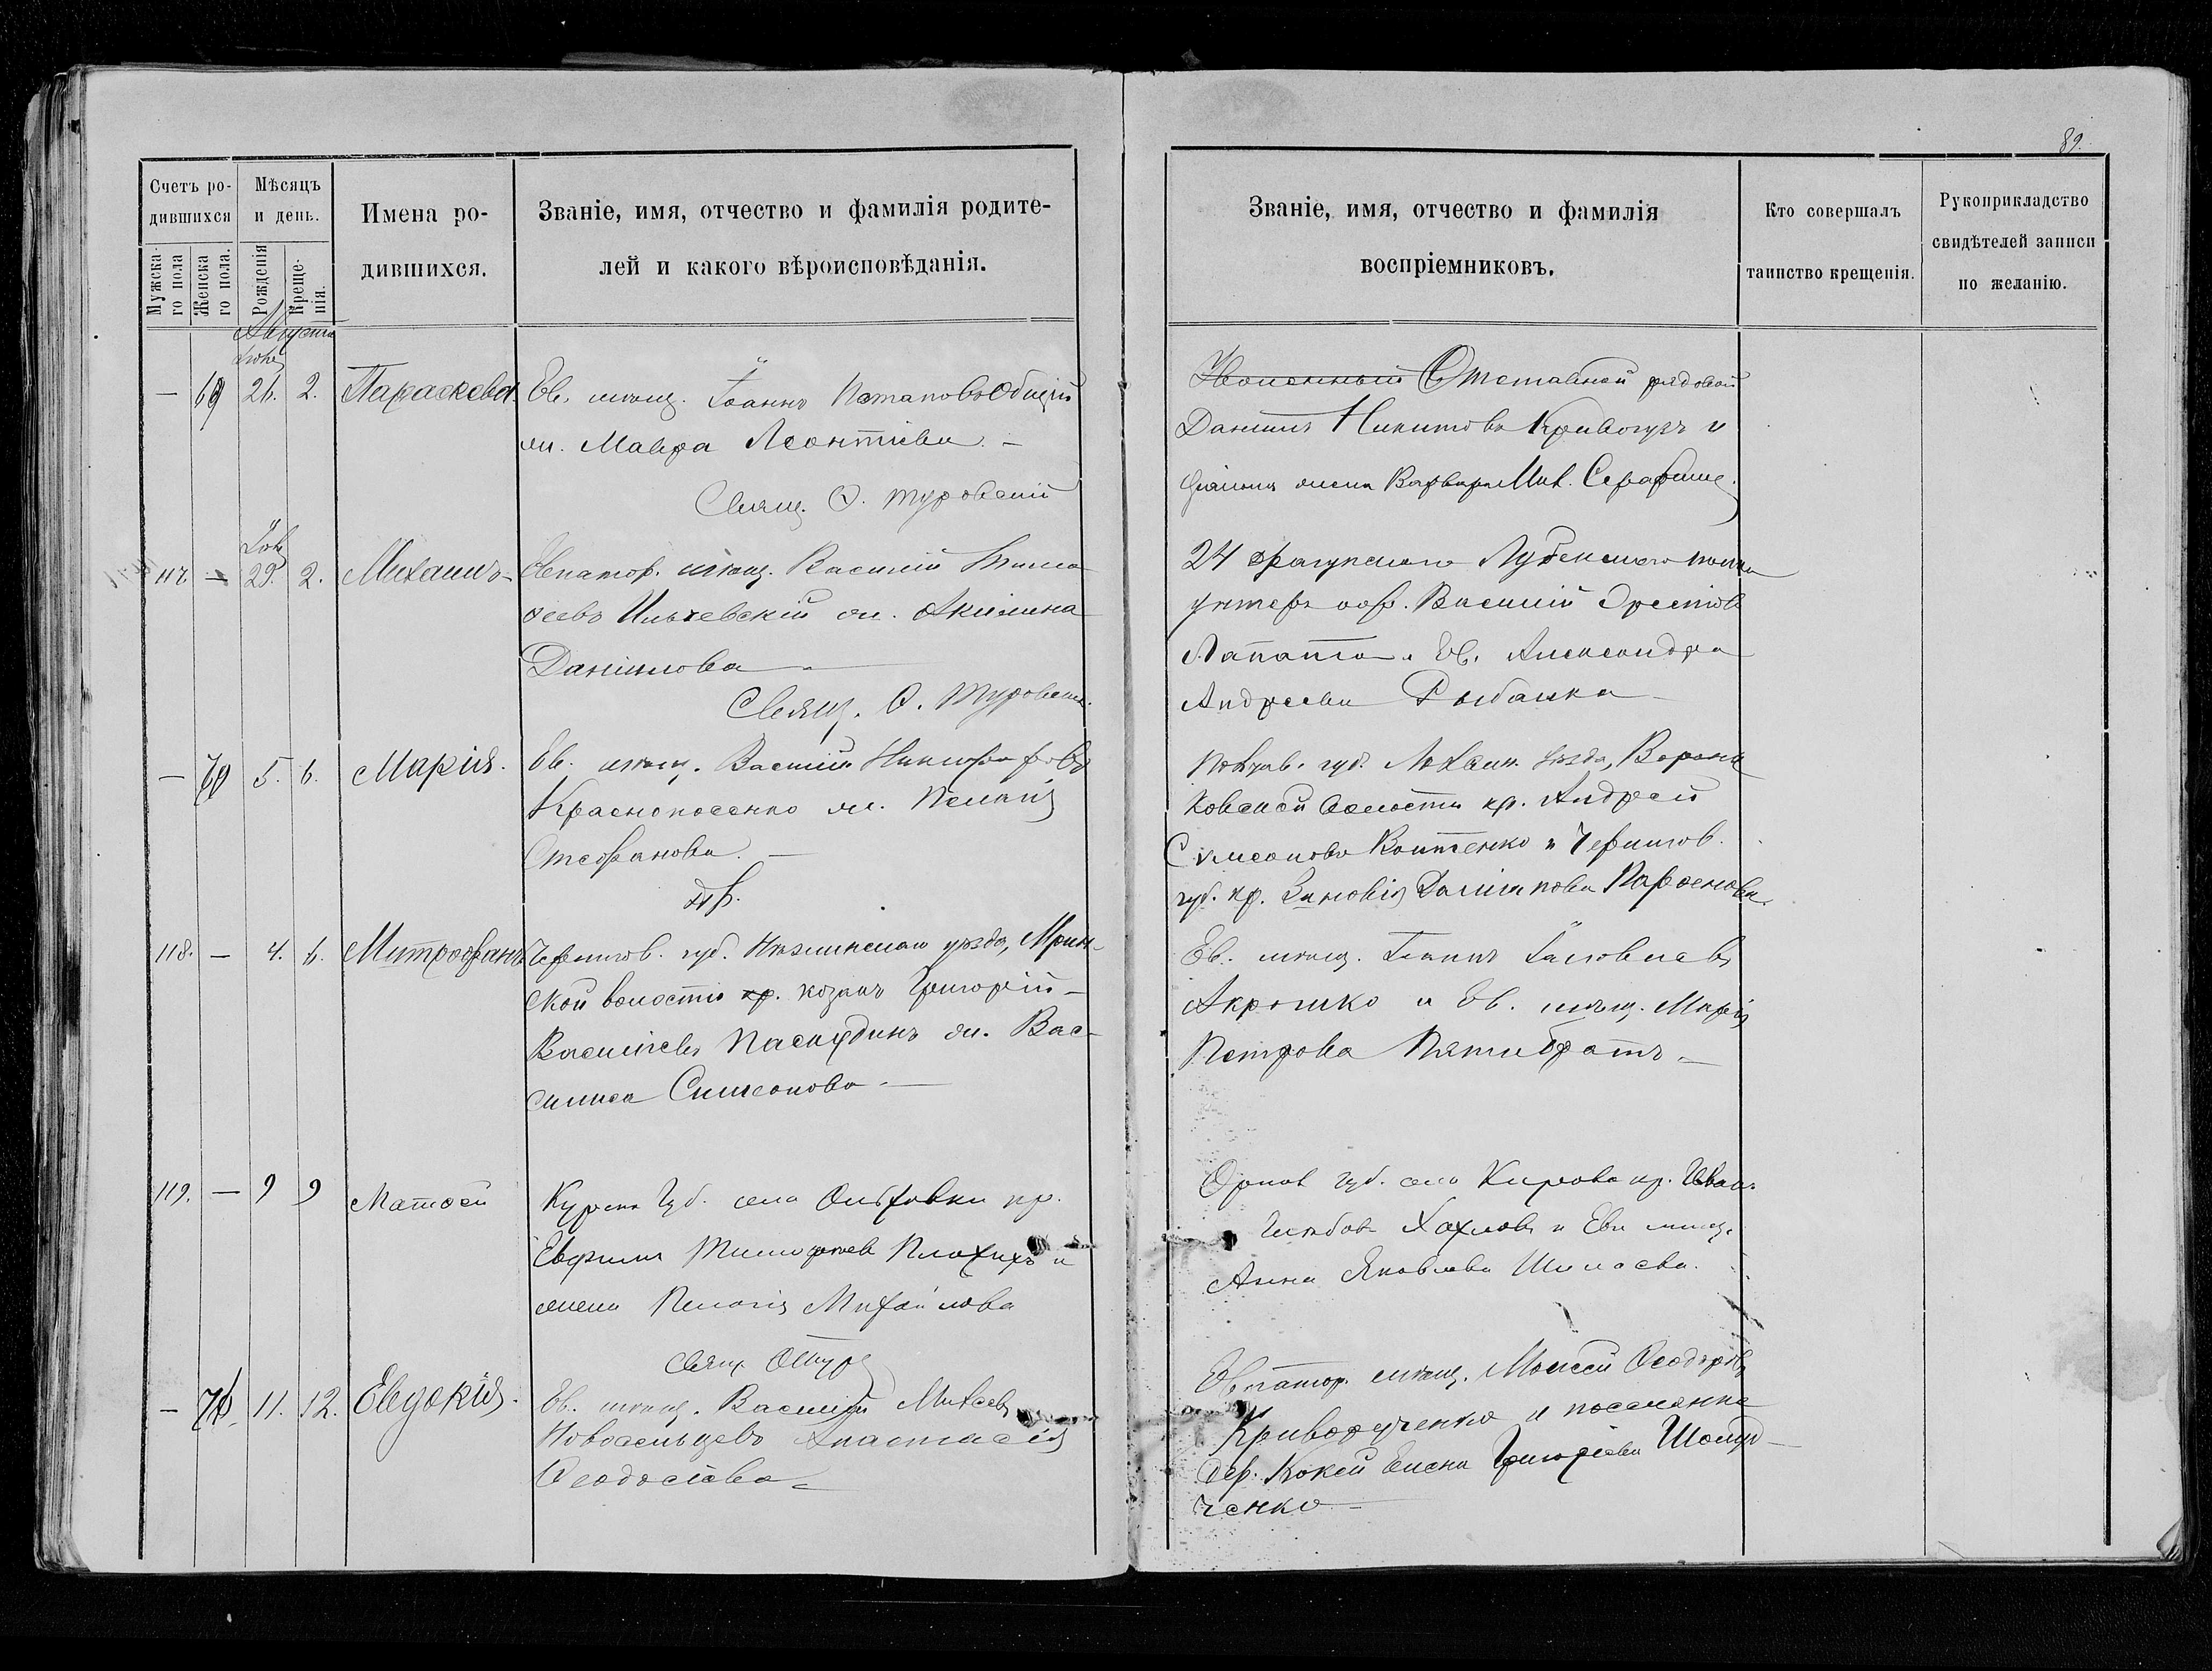 89.
Счетъ ро-
дившихся
Мужска-
го пола
Женска
го пола.
Мѣсяцъ
и день.
Рожденія
Креще-
нія.
Имена ро-
дившихся.
Званіе, имя, отчество и фамилія родите-
лей и какого вѣроисповѣданія.
Званіе, имя, отчество и фамилія
воспріемниковъ.
Кто совершалъ
таинство крещенія.
Рукоприкладство
свидѣтелей записи
по желанію.
Августа
— 69 26. 2. Параскева. Ев. мѣщ. Іоаннъ Потаповъ Общій
ж. Мавра Леонтіева —
Свящ. Ѳ. Туровскій
Отставной рядовой
Даніилъ Никитовъ Кривогузъ и
жена Варвара Мих.
117 — 29. 2. Михаилъ Евпатор. мѣщ. Василій Тимо
ѳеевъ Ильчевскій ж. Акилина
Даніилова
Свящ. Ѳ. Туровскій
24 драгунскаго Лубенскаго полка
унтеръ оф. Василій Орестовъ
Лапата и Ев. Александра
Андреева Рыбалка
— 70 5. 6. Марія. Ев. мѣщ. Василій Никифоровъ
Краснокосенко ж. Пелагія
Стефанова. —
Полтав. губ. Лохвиц. уѣзда, Ворон
ковской волости кр. Андрей
Симеоновъ Коптенко и Чернигов.
губ. кр. Зиновія Парфенова
118. — 4. 6. Митрофанъ Чернигов. губ. Нѣжинскаго уѣзда, Мрин-
ской волости кр. козакъ Григорій
Васильевъ Паскудинъ ж. Вас-
силиса Симеонова —
Ев. мѣщ. Іоаннъ Іаковлевъ
Акрошко и Ев. мѣщ. Марія
Петрова Пятибратъ —
119. — 9 9 Матѳей Курск. Губ. села Ольховки кр.
Евфимъ Тимофеев Плохихъ и
жена Пелагія Михайлова
Свящ Ѳ Тур
Орлов губ. села кр. Иван
Глѣбовъ Хохловъ и Евп мѣщ.
Анна Яковлева Шилаева.
— 71. 11. 12. Евдокія. Ев. мѣщ. Василій Михеевъ
Новосельцевъ Анастасія
Ѳеодосіева
Евпатор. мѣщ. Моисей Ѳеодоровъ
Криворученко и поселянка
дер. Кокей Елена Григоріева Шолуд-
ченко —